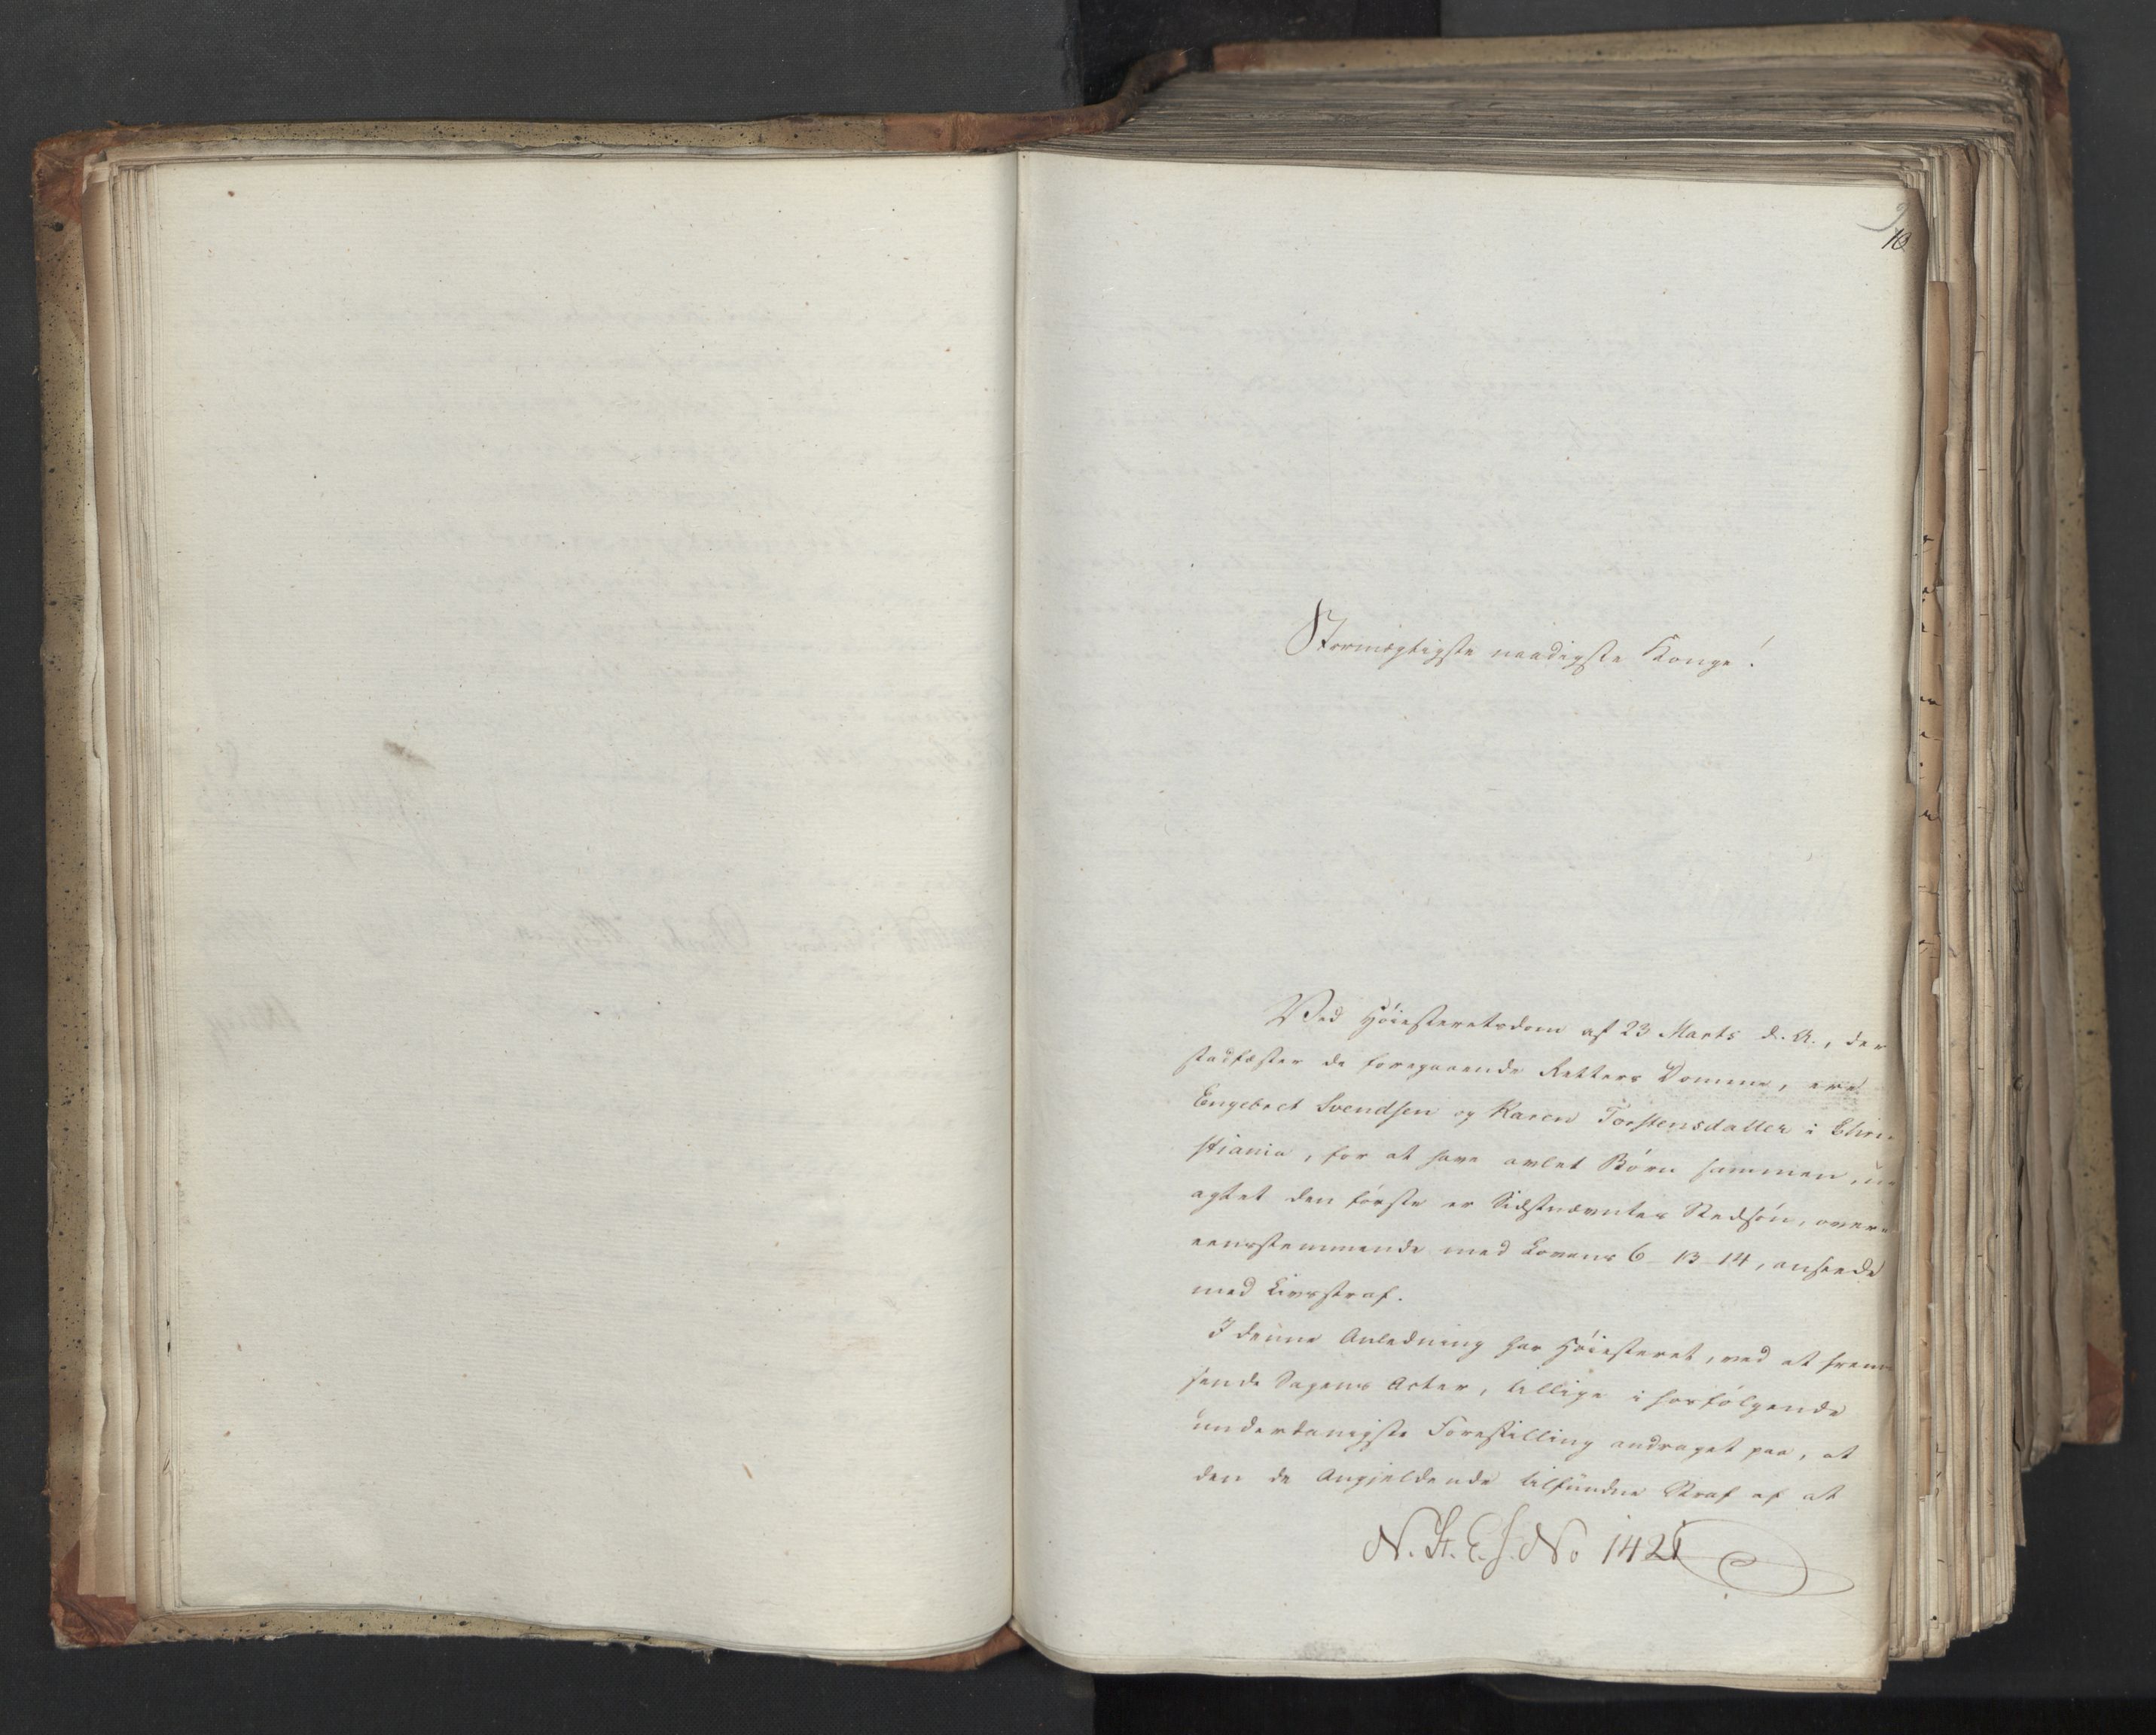 10
Stormægtigste naadigste Konge!
Ved Høiesteretsdom af 23 Marts d. A., der
stadfæster de foregaaende Retters Domme, ere
Engebret Svendsen og Karen Torstensdatter i Chri-
stiania, for at have avlet Børn sammen, u-
agtet den første er Sidstnævntes Stedsøn, over-
eensstemmende med Lovens 6-13-14, anseede
med Livsstraf.
I denne Anledning har Høiesteret, ved at frem-
sende Sagens Acter, tillige i hosfølgende
underdanigste Forestilling andraget paa, at
den de Angjeldende tilfundne Straf af at
N. St. E. J. No 1421